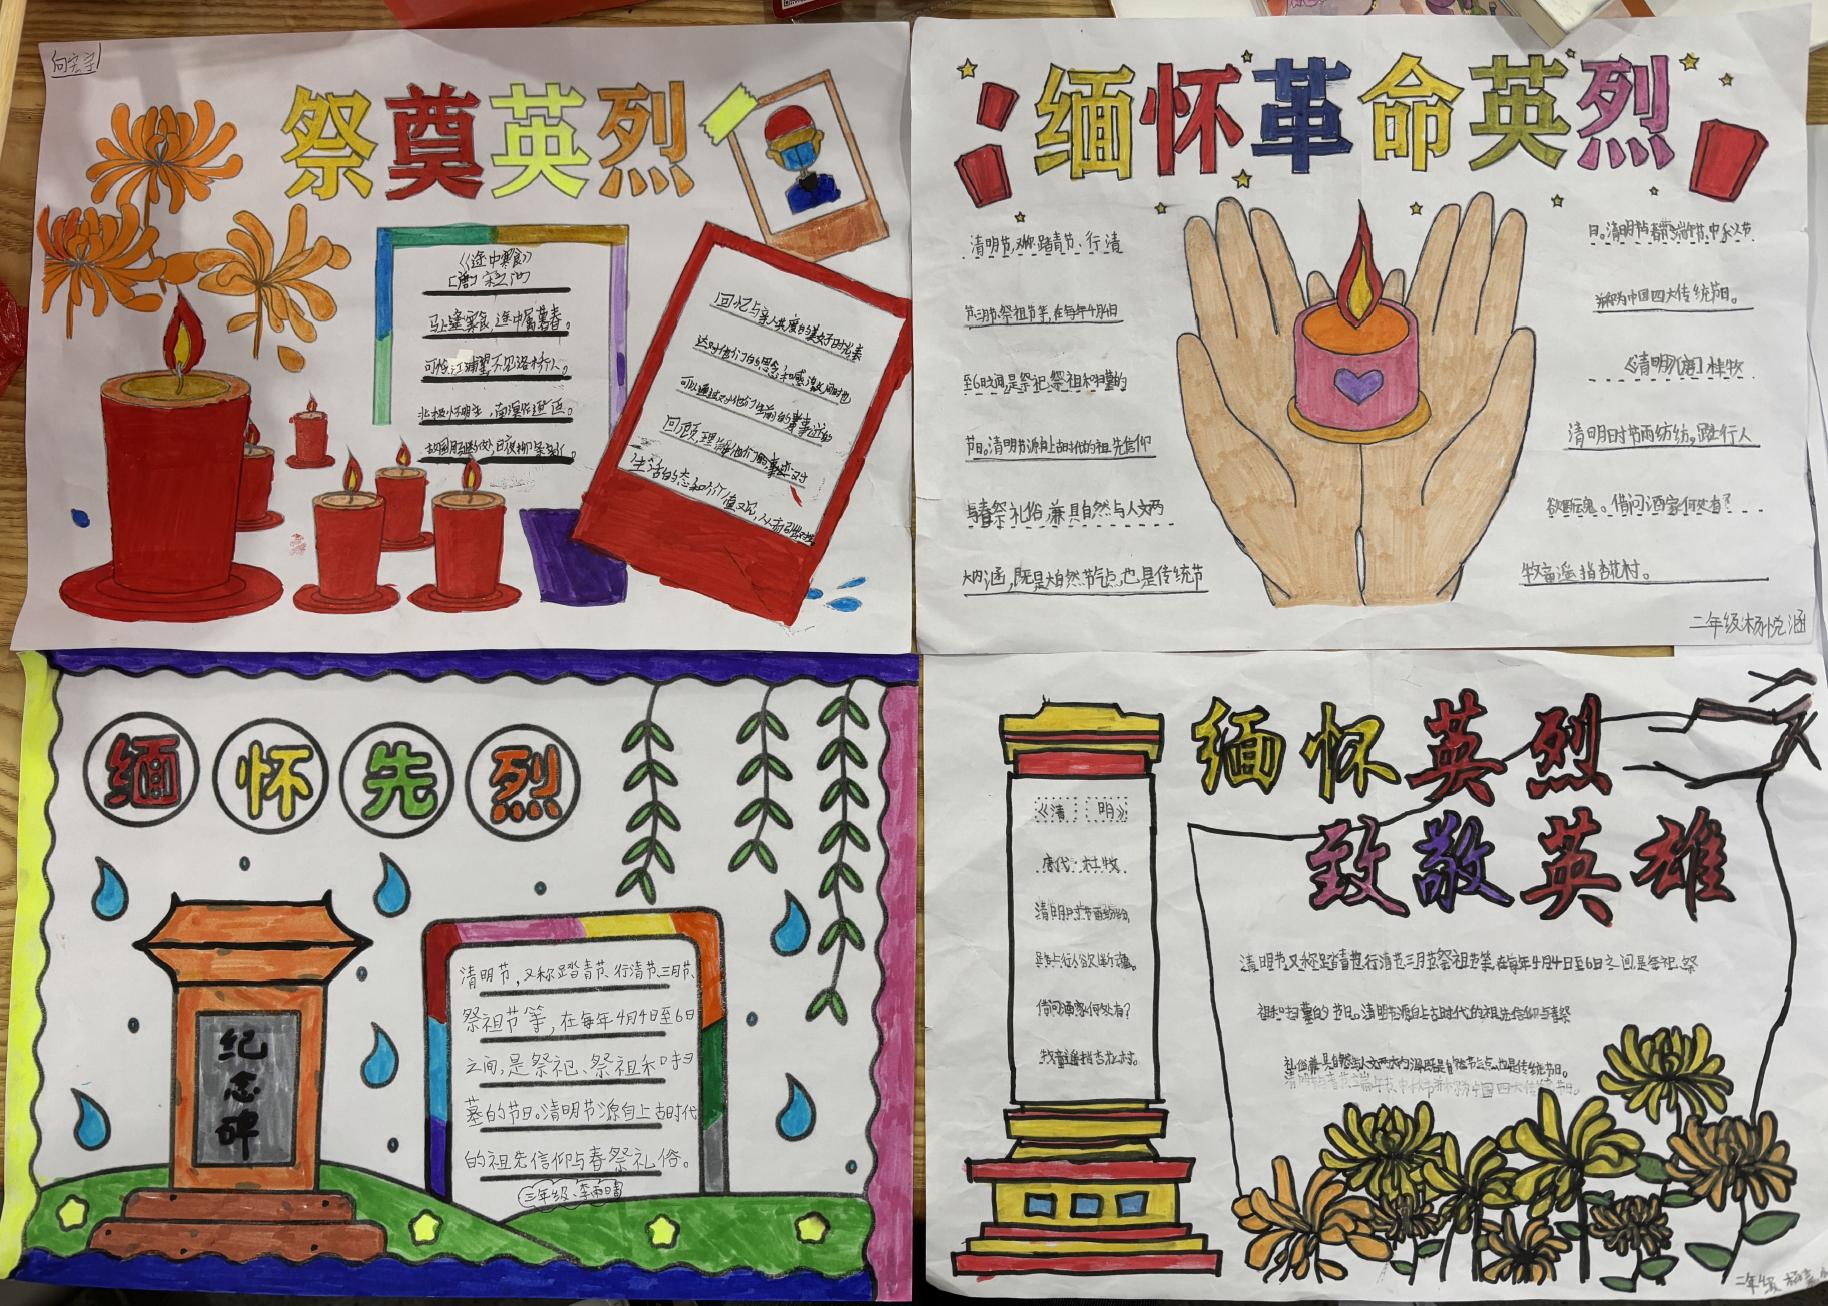 祭奠英烈
《途中寒食》
马上逢寒食，途中属暮春。
可怜江浦望，不见洛桥人。
北极怀明主，
回忆与亲人共度的美好时光，表
达对他们的思念和感激，同时也
可以通过对他们生前的
回顾，理解他们的
生活的态和价值观，从
缅怀革命英烈
清明节，又称踏青节、行清
节三月节、祭祖节等，在每年4月4日
至6日之间，是祭祀、祭祖和扫墓的
节日。清明节源自上古时代的祖先信仰
与春祭礼俗，兼具自然与人文两
大内涵，既是大自然节气点，也是传统节
日。清明节与春节、端午节、中秋节
并称为中国四大传统节日。
《清明》[唐]杜牧
清明时节雨纷纷，路上行人
欲断魂。借问酒家何处有？
牧童遥指杏花村。
二年级杨悦涵
缅怀先烈
纪念碑
清明节，又称踏青节、行清节、三月节、
祭祖节等，在每年4月4日至6日
之间，是祭祀、祭祖和扫
墓的节日。清明节源自上古时代
的祖先信仰与春祭礼俗。
三年级：李雨晴
缅怀英烈
致敬英雄
《清明》
唐代：杜牧
清明时节雨纷纷，
借问酒家何处有？
牧童遥指杏花村。
清明节又称踏青节、行清节、三月节、祭祖节等，在每年4月4日至6日之间，是祭祀、祭
祖和扫墓的节日。清明节源自上古时代的祖先信仰与春祭
礼俗，兼具自然与人文两大内涵，既是自然节气点，也是传统节日。
清明节与春节、端午节、中秋节并称为中国四大传统节日。
二年级